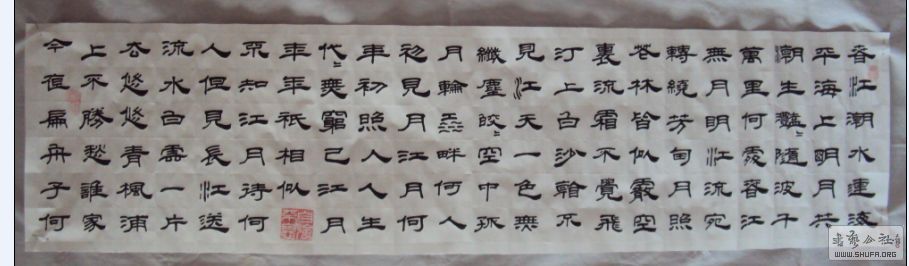 春江潮水連海
平海上明月共
潮生灩〻隨波千
萬里何處春江
無月明江流宛
轉繞芳甸月照
花林皆似霰空
裏流霜不覺飛
汀上白沙看不
見江天一色無
纖塵皎〻空中孤
月輪 畔何人
初見月江月何
年初照人人生
代〻無窮已江月
年年祇相似
不知江月待何
人但見長江送
流水白雲一片
去悠悠青楓浦
上不勝愁誰家
今夜扁舟子何
书艺公社
WWW.SHUFA.ORG